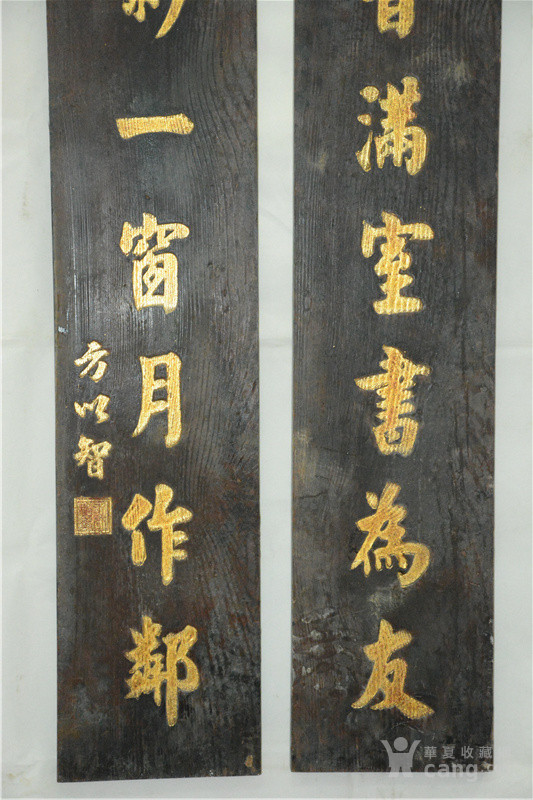 滿室書為友
一窗月作鄰
方以智
華夏收藏
cang.c